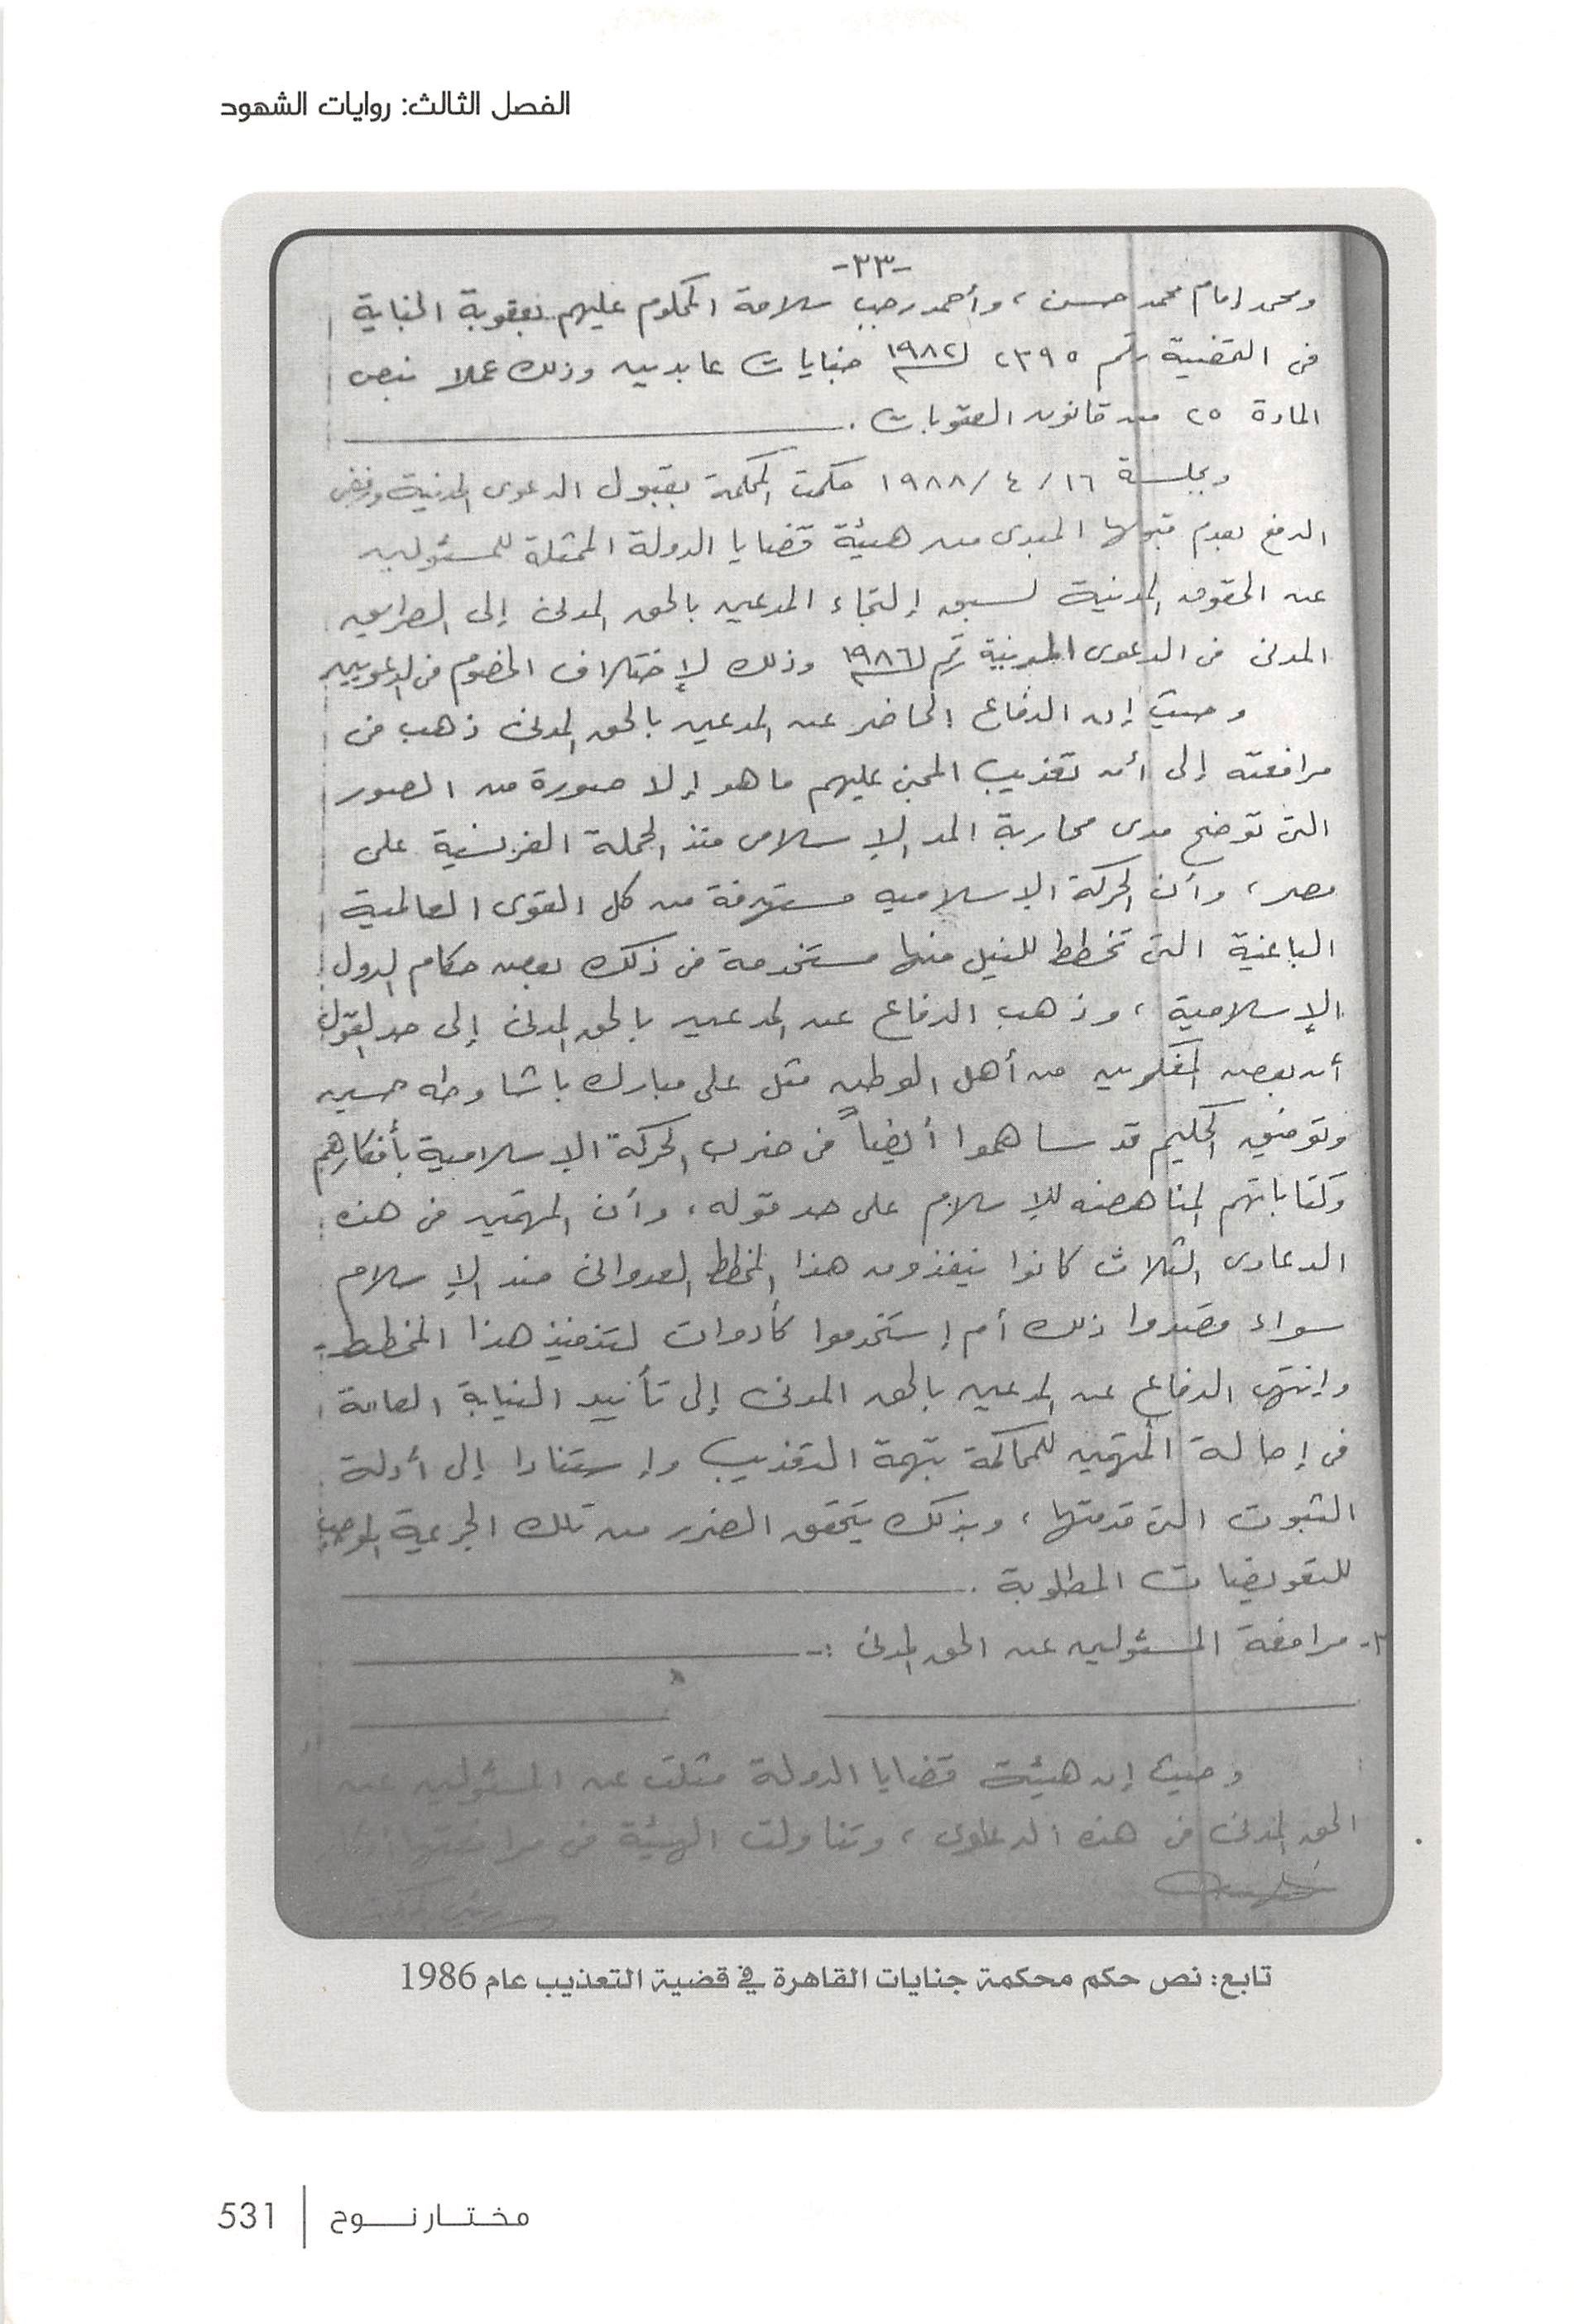 الفصل الثالث: روايات الشهود
-٣٣-
ومحمد إمام محمد حسن ، وأحمد رجب سلامة المحكوم عليهم بعقوبة الجناية
فى القضية رقم ٢٣٩٥ لسنة ١٩٨٢ جنايات عابدين وذلك عملا بنص
المادة ٢٥ من قانون العقوبات .
وبجلسة ١٦/٤/١٩٨٨ حكمت المحكمة بقبول الدعوى المدنية ورفض
الدفع بعدم قبولها المبدى من هيئة قضايا الدولة الممثلة للمسئولين
عن الحقوق المدنية لسبق إلتجاء المدعين بالحق المدنى إلى الطريق
المدنى فى الدعوى المدنية رقم لسنة ١٩٨٦ وذلك لإختلاف الخصوم فى الدعويين
وحيث إن الدفاع الحاضر عن المدعين بالحق المدنى ذهب فى
مرافعته إلى أن تعذيب المجنى عليهم ما هو إلا صورة من الصور
التى توضح مدى محاربة المد الإسلامى منذ الحملة الفرنسية على
مصر ، وأن الحركة الإسلاميه مستهدفة من كل القوى العالمية
الباغية التى تخطط للنيل منها مستخدمة فى ذلك بعض حكام الدول
الإسلامية ، وذهب الدفاع عن المدعين بالحق المدنى إلى حد القول
أن بعض المفكرين من أهل الوطن مثل على مبارك باشا وطه حسين
وتوفيق الحكيم قد ساهموا أيضاً فى ضرب الحركة الإسلامية بأفكارهم
وكتاباتهم المناهضه للإسلام على حد قوله ، وأن المتهمين فى هذه
الدعاوى الثلاث كانوا ينفذون هذا المخطط العدوانى ضد الإسلام
سواء قصدوا ذلك أم إستخدموا كأدوات لتنفيذ هذا المخطط
وإنتهى الدفاع عن المدعين بالحق المدنى إلى تأييد النيابة العامة
فى إحالة المتهمين للمحاكمة بتهمة التعذيب وإستنادا إلى أدلة
الثبوت التى قدمتها ، وبذلك يتحقق الضرر من تلك الجريمة الموجب
للتعويضات المطلوبة .
مرافعة المسئولين عن الحق المدنى :-
وحيث إن هيئة قضايا الدولة مثلت عن المسئولين عن
الحق المدنى فى هذه الدعاوى ، وتناولت الهيئة فى مرافعتها
تابع: نص حكم محكمة جنايات القاهرة في قضية التعذيب عام 1986
مختار نوح | 531